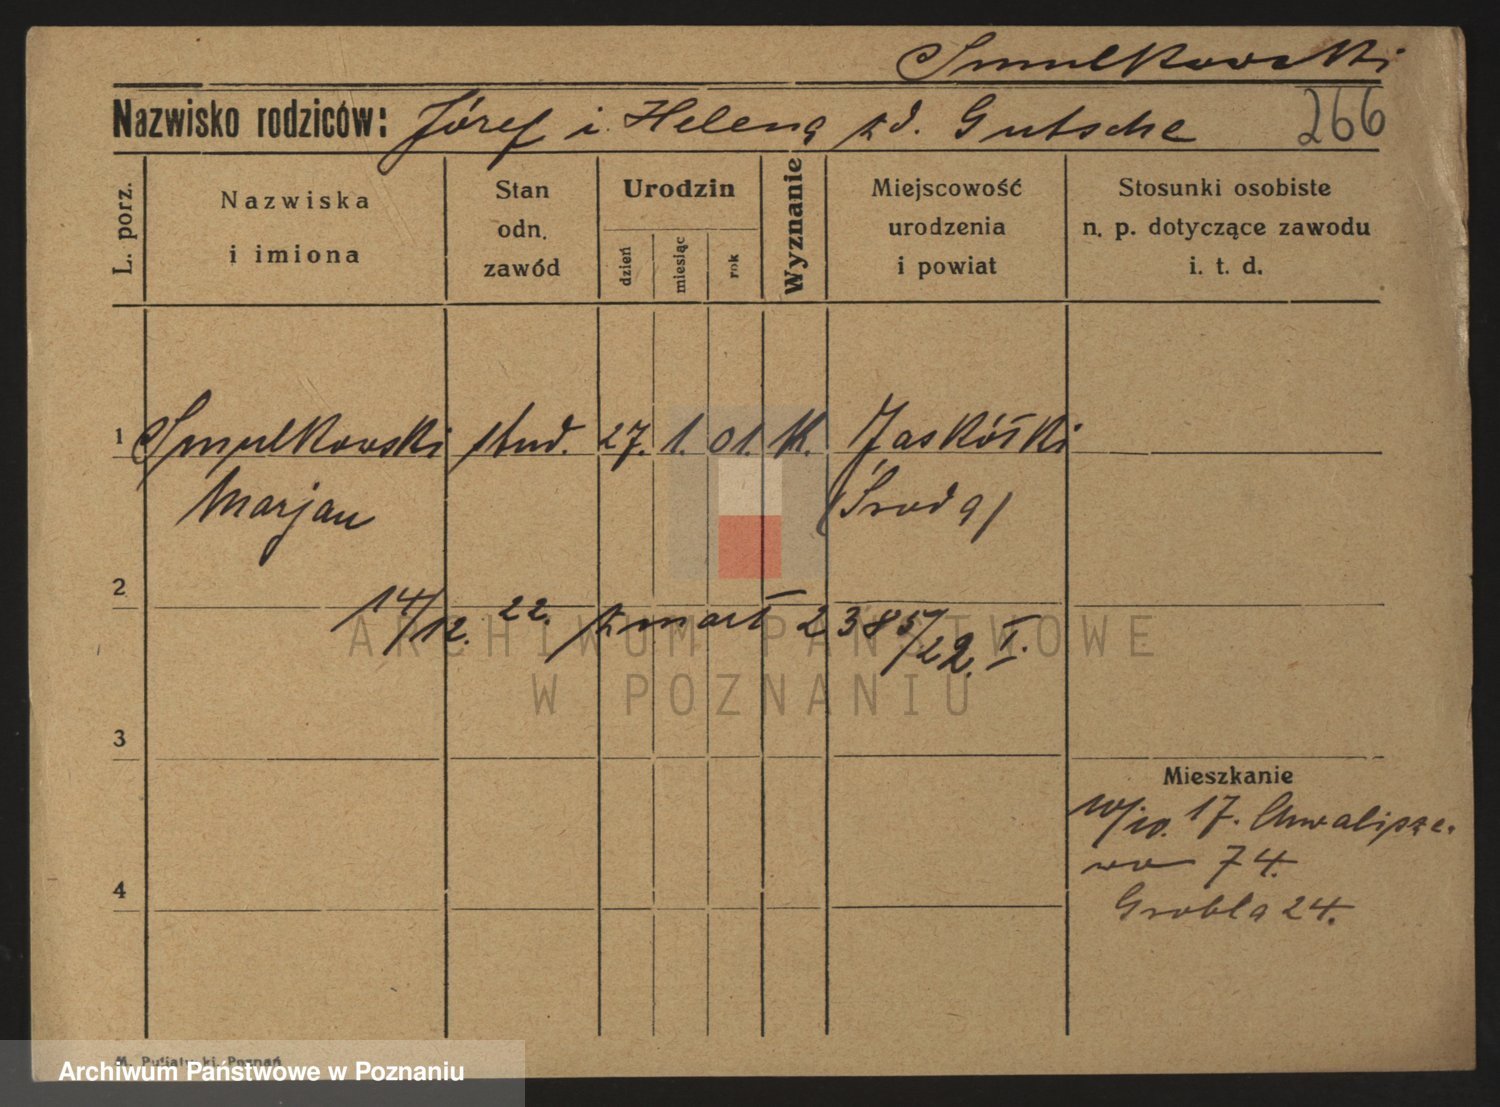 Smulkowski
Nazwisko rodziców: Józef i Helena z d. Gutsche
266
L. porz.
Nazwiska
i imiona
Stan
odn.
zawód
Urodzin
dzień
miesiąc
rok
Wyznanie
Miejscowość
urodzenia
i powiat
Stosunki osobiste
n. p. dotyczące zawodu
i. t. d.
1 Smulkowski stud. 27. 1. 01. kk. Jaskółki
Marjan (Środa)
2
14/12. 22. zmarł 2385/22. I.
ARCHIWUM PAŃSTWOWE
W POZNANIU
3
Mieszkanie
10/10. 17. Chwalisze-
wo 74.
4
Grobla 24.
M. Putiatycki, Poznań
Archiwum Państwowe w Poznaniu